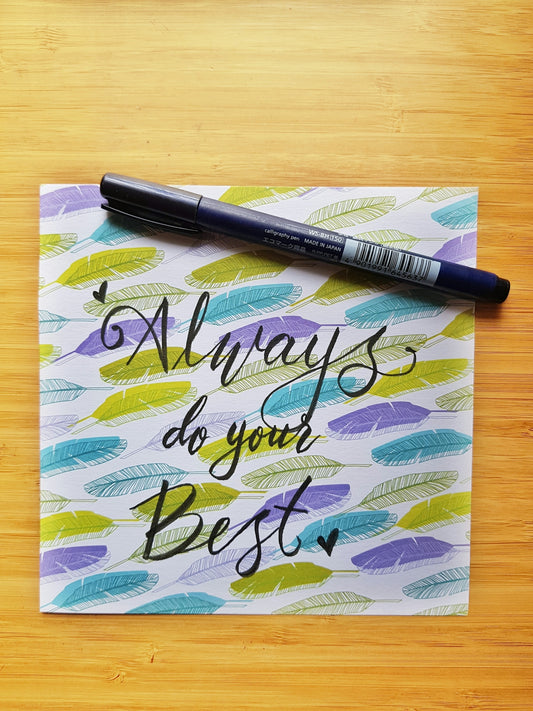 WS-BH(150)
calligraphy pen MADE IN JAPAN
Always
do your
Best